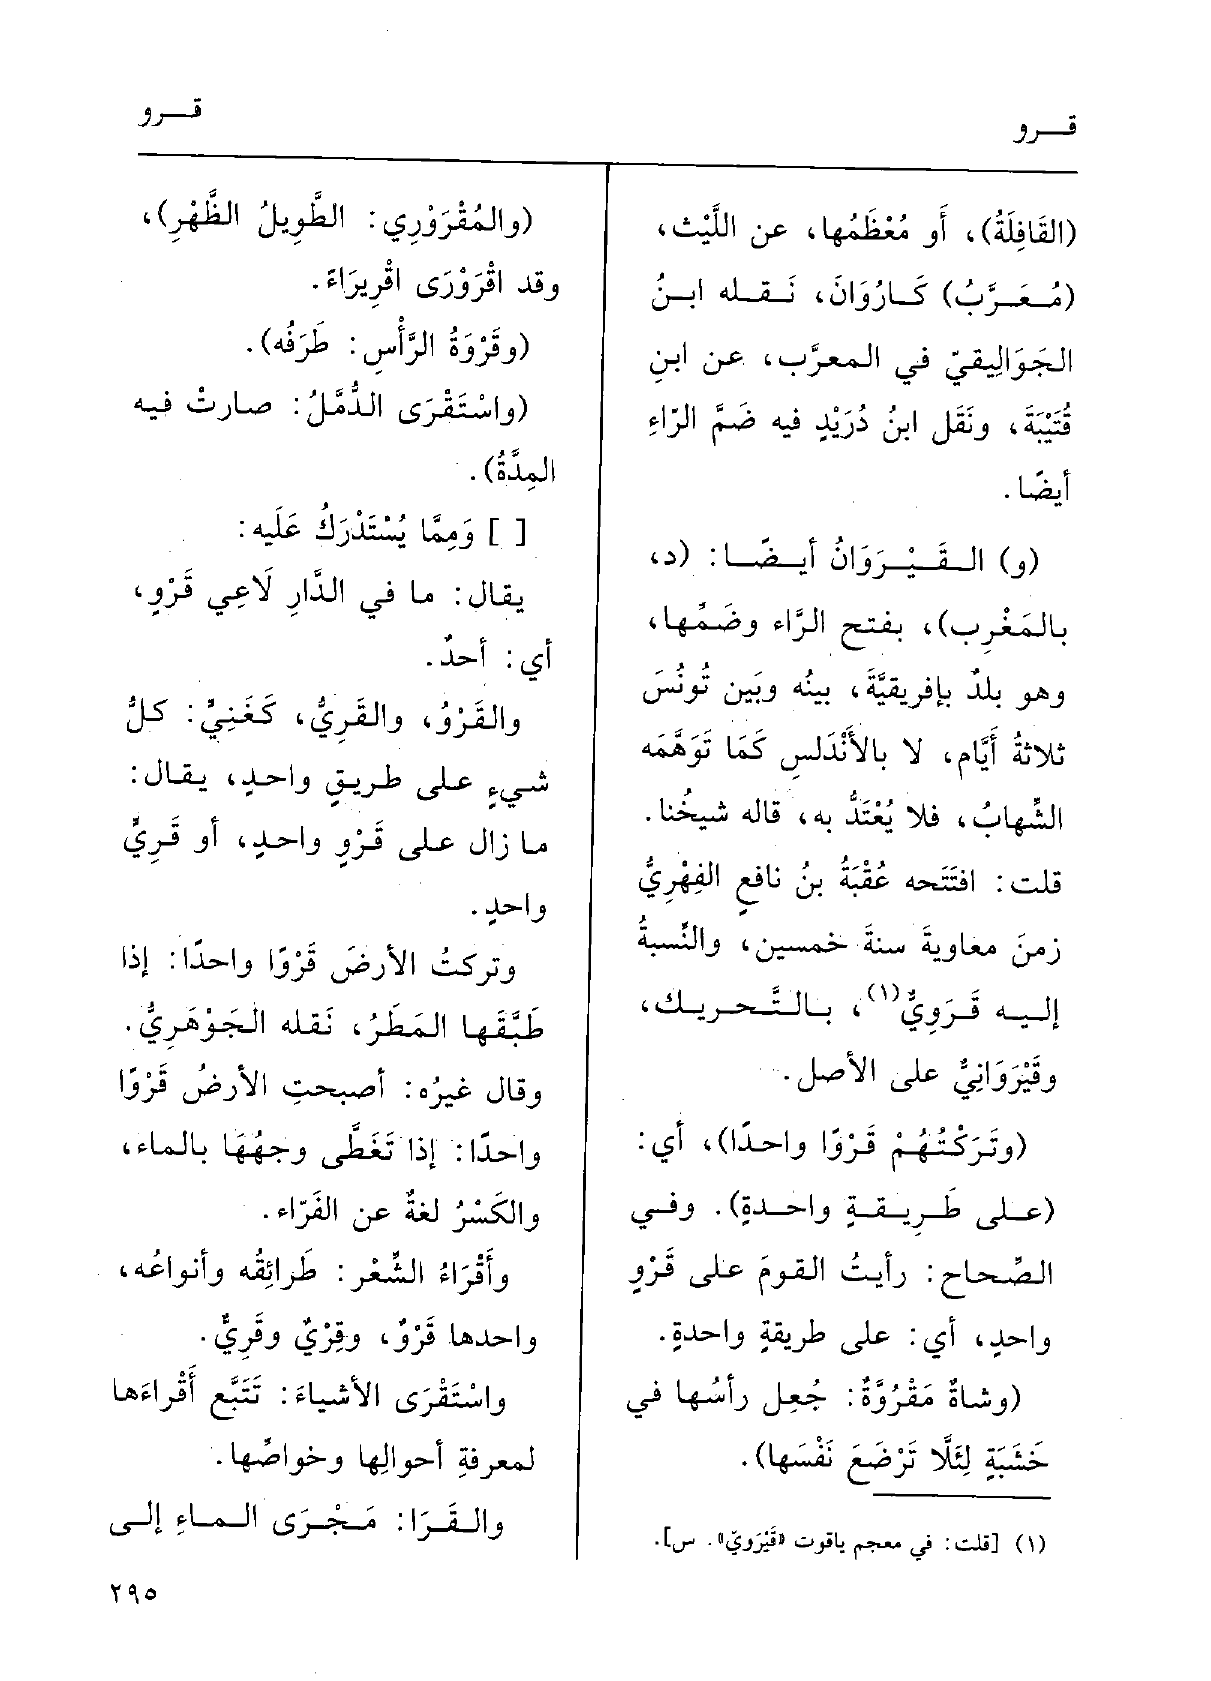 قــرو
قــرو
(القَافِلَةُ)، أَو مُعْظَمُها، عن اللَّيْث،
(مُـعَـرَّبُ) كَـارُوَانَ، نَـقـله ابـنُ
الجَوَالِيقيّ في المعرَّب، عن ابنِ
قُتَيْبَةَ، ونَقَل ابنُ دُرَيْدٍ فيه ضَمَّ الرّاءِ
أيضًا.
(و) الـقَـيْـرَوَانُ أيـضًـا: (د،
بالمَغْرِب)، بفتح الرَّاء وضَمِّها،
وهو بلدٌ بإفريقيَّةَ، بينُه وبَين تُونُسَ
ثلاثةُ أَيَّام، لا بالأَنْدَلسِ كَمَا تَوَهَّمَه
الشِّهابُ، فلا يُعْتَدُّ به، قاله شيخُنا.
قلت: افتَتَحه عُقْبَةُ بنُ نافعٍ الفِهْرِيُّ
زمنَ معاويةَ سنةَ خمسين، والنِّسبةُ
إلـيـه قَـرَوِيٌّ(١)، بـالـتَّـحـريـك،
وقَيْرَوَانِيٌّ على الأصل.
(وتَرَكْتُهُمْ قَرْوًا واحدًا)، أي:
(عـلـى طَـرِيـقـةٍ واحـدةٍ). وفـي
الصِّحاح: رأيتُ القومَ على قَرْوٍ
واحدٍ، أي: على طريقةٍ واحدةٍ.
(وشاةٌ مَقْرُوَّةٌ: جُعِل رأسُها في
خَشَبَةٍ لِئَلَّا تَرْضَعَ نَفْسَها).
(١) [قلت: في معجم ياقوت «قَيْرَوِيّ». س].
(والمُقْرَوْرِي: الطَّوِيلُ الظَّهْرِ)،
وقد اقْرَوْرَى اقْرِيرَاءً.
(وقَرْوَةُ الرَّأْسِ: طَرَفُه).
(واسْتَقْرَى الدُّمَّلُ: صارتْ فيه
المِدَّةُ).
[ ] وَمِمَّا يُسْتَدْرَكُ عَلَيه:
يقال: ما في الدَّارِ لَاعِي قَرْوٍ،
أي: أحدٌ.
والقَرْوُ، والقَرِيُّ، كَغَنِيٍّ: كلُّ
شيءٍ على طريقٍ واحدٍ، يقال:
ما زال على قَرْوٍ واحدٍ، أو قَرِيٍّ
واحدٍ.
وتركتُ الأرضَ قَرْوًا واحدًا: إذا
طَبَّقَها المَطَرُ، نَقله الجَوْهَرِيُّ.
وقال غيرُه: أصبحتِ الأرضُ قَرْوًا
واحدًا: إذا تَغَطَّى وجهُهَا بالماء،
والكَسْرُ لغةٌ عن الفَرّاء.
وأَقْرَاءُ الشِّعْر: طَرائِقُه وأنواعُه،
واحدها قَرْوٌ، وقِرْيٌ وقَرِيٌّ.
واسْتَقْرَى الأشياءَ: تَتَبَّع أَقْراءَها
لمعرفةِ أحوالِها وخواصِّها.
والـقَـرَا: مَـجْـرَى الـمـاءِ إلـى
٢٩٥